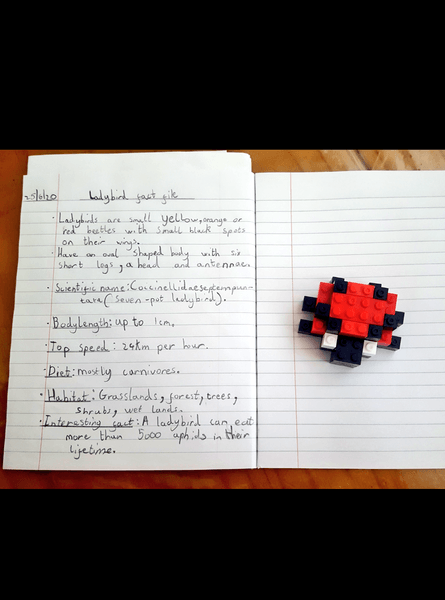 25/6/20 Ladybird fact file
· Ladybirds are small yellow, orange or
red beetles with small black spots
on their wings.
· Have an oval shaped body with six
short legs, a head and antennae.
· Scientific name: Coccinellidaeseptempun-
tare (seven-pot ladybird).
· Bodylength: up to 1cm.
· Top speed: 24km per hour.
· Diet: mostly carnivores.
· Habitat: Grasslands, forest, trees,
shrubs, wet lands.
· Interesting fact: A ladybird can eat
more than 5000 aphids in their
lifetime.